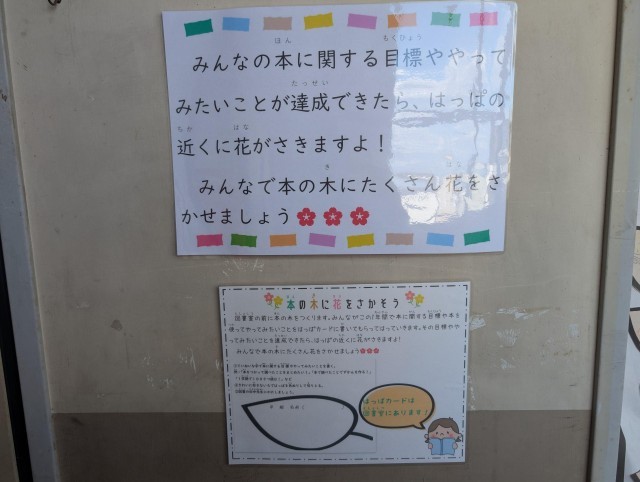 みんなの本に関する目標ややって
みたいことが達成できたら、はっぱの
近くに花がさきますよ！
みんなで本の木にたくさん花をさ
かせましょう
本の木に花をさかそう
図書室の前に本の木をつくります。みんながこの1年間で本に関する目標や本を
使ってやってみたいことをはっぱカードに書いてもらってはっていきます。その目標ややっ
てみたいことを達成できたら、はっぱの近くに花がさきますよ！
みんなで本の木にたくさん花をさかせましょう
はっぱカードは
図書室にあります！